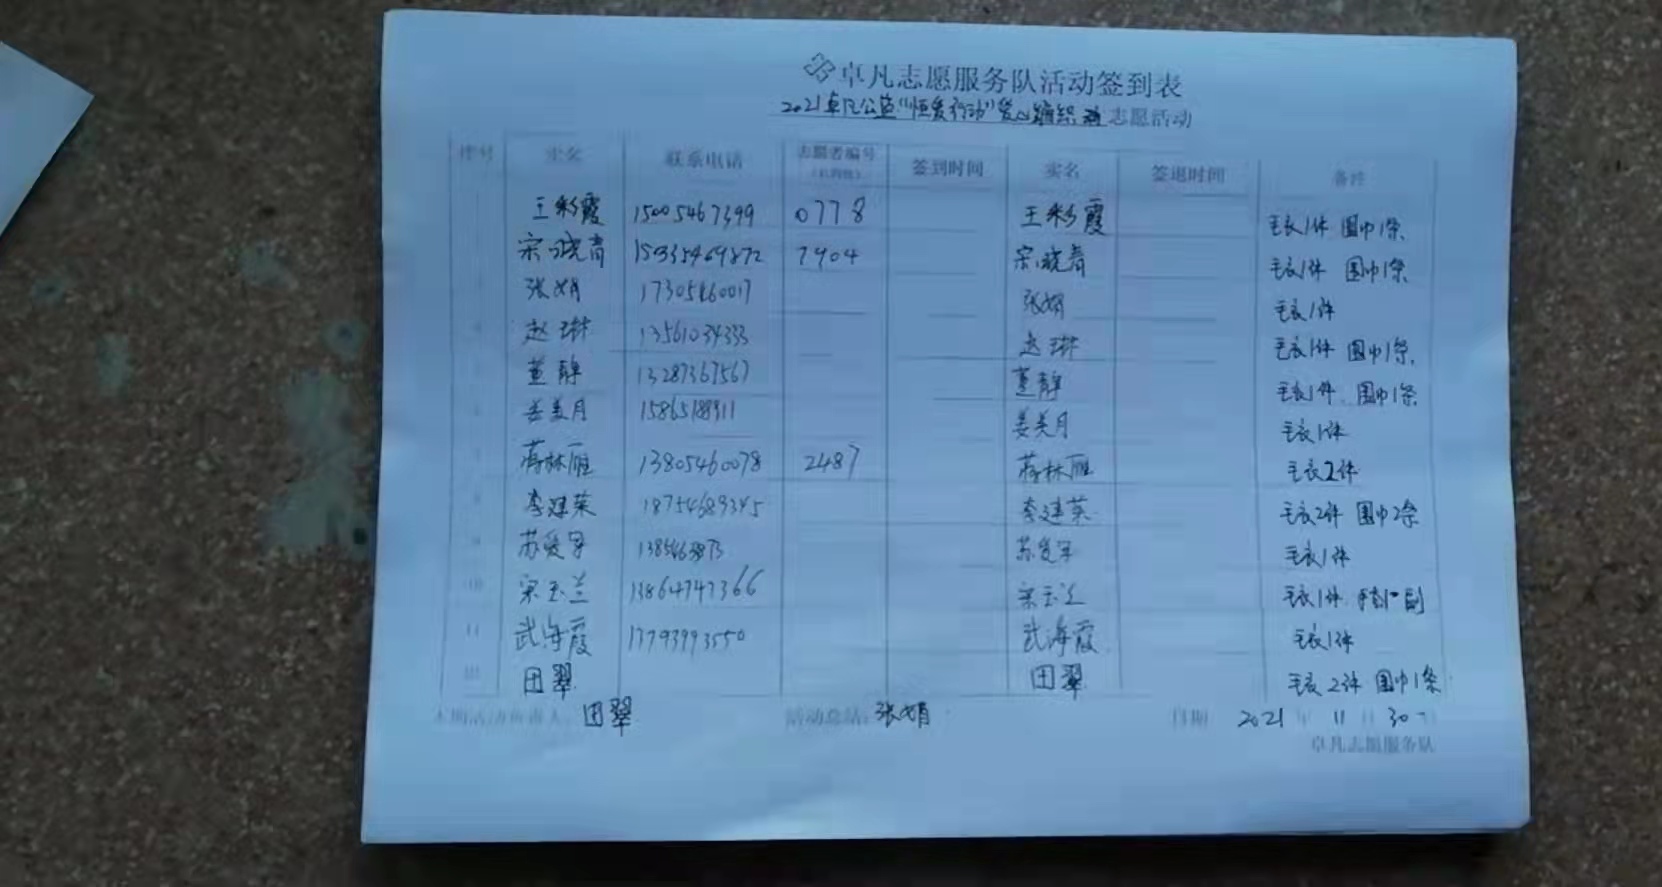 卓凡志愿服务队活动签到表
2021卓凡公益“恒爱行动”爱心编织 志愿活动
序号 实名 联系电话 志愿者编号 签到时间 实名 签退时间 备注
王彩霞 15005467399 0778 王彩霞 毛衣1件 围巾1条
宋晓青 7904 宋晓青 毛衣1件 围巾1条
张娟 17305460017 张娟 毛衣1件
赵琳 13561034333 赵琳 毛衣1件 围巾1条
董静 13287367567 董静 毛衣1件 围巾1条
姜美月 15865188911 姜美月 毛衣1件
蒋林雁 13805460078 2487 蒋林雁 毛衣2件
李建荣 18754689345 李建荣 毛衣2件 围巾2条
苏爱军 苏爱军 毛衣1件
10 宋玉兰 13864747366 宋玉兰 毛衣1件 手套1副
11 武海霞 17793993550 武海霞 毛衣1件
田翠 田翠 毛衣2件 围巾1条
本期活动负责人: 田翠 活动总结: 张娟 日期 2021 年 11 月 30 日
卓凡志愿服务队